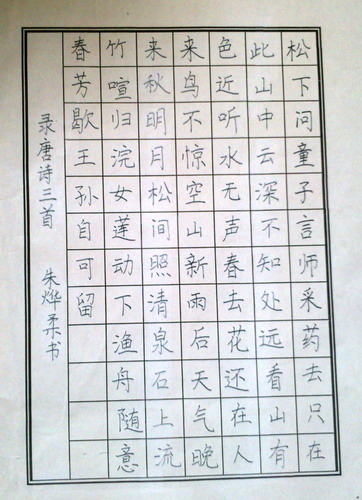 松下问童子言师采药去只在
此山中云深不知处远看山有
色近听水无声春去花还在人
来鸟不惊空山新雨后天气晚
来秋明月松间照清泉石上流
竹喧归浣女莲动下渔舟随意
春芳歇王孙自可留
录唐诗三首 朱烨柔书